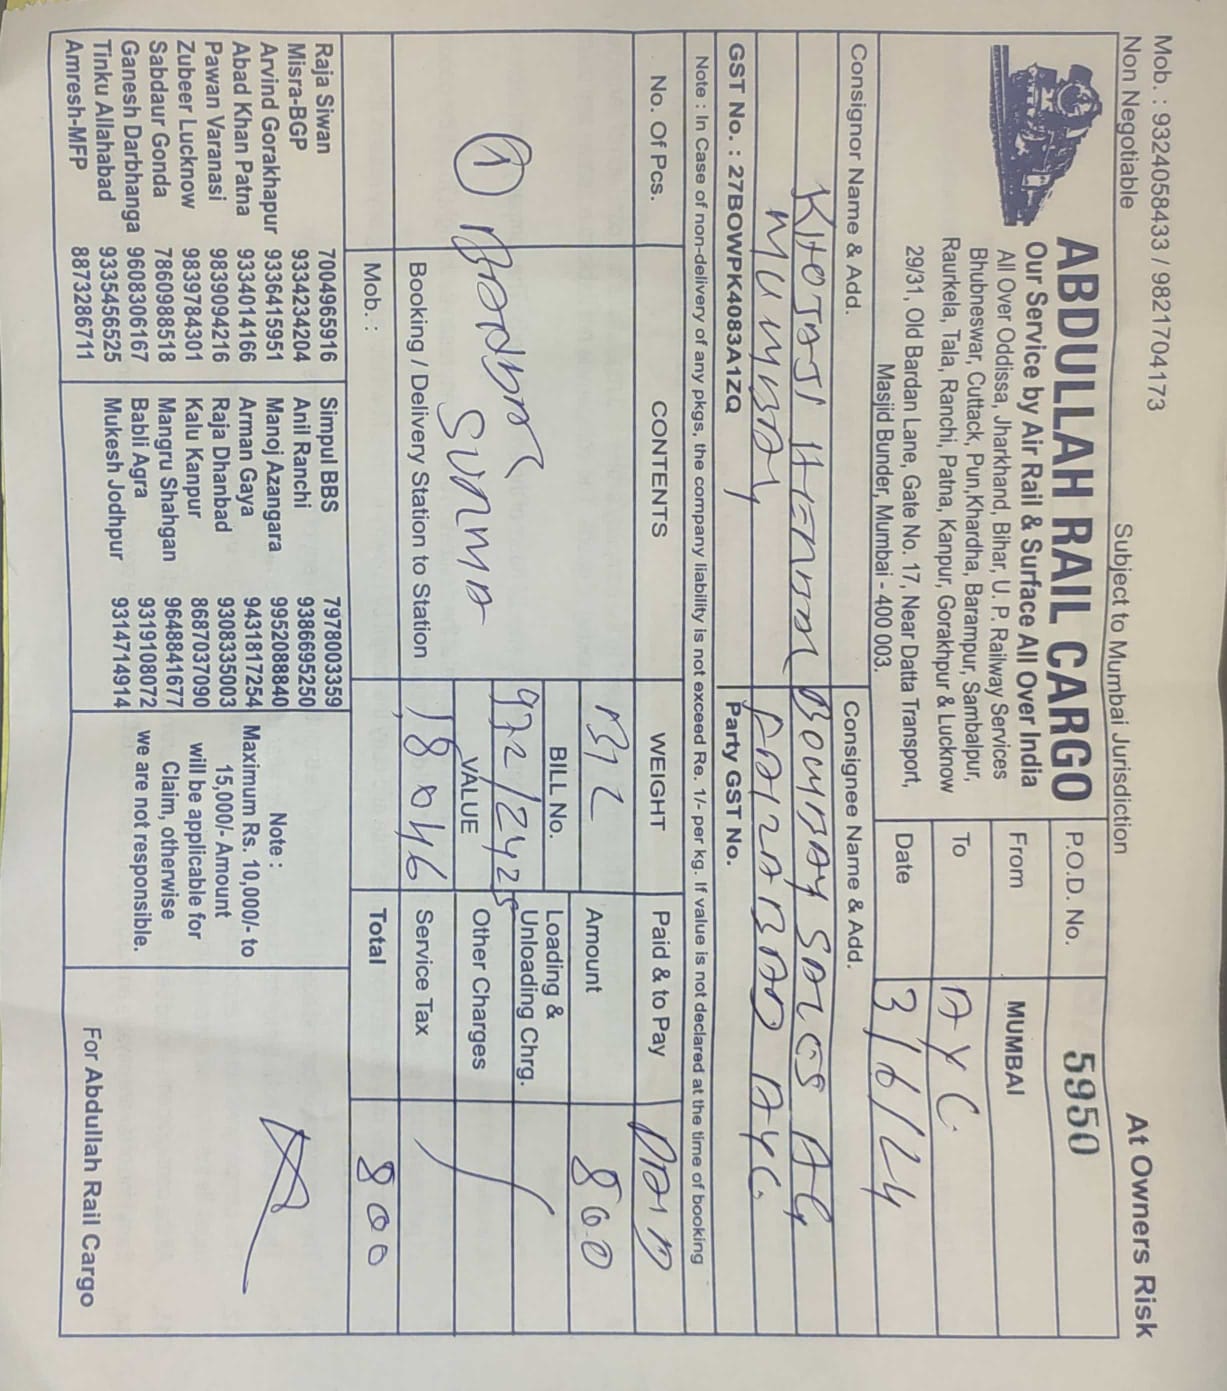 Mob. : 9324058433 / 9821704173
Non Negotiable
Subject to Mumbai Jurisdiction
At Owners Risk
ABDULLAH RAIL CARGO
Our Service by Air Rail & Surface All Over India
All Over Oddissa, Jharkhand, Bihar, U. P. Railway Services
Bhubneswar, Cuttack, Puri,Khardha, Barampur, Sambalpur,
Raurkela, Tala, Ranchi, Patna, Kanpur, Gorakhpur & Lucknow
29/31, Old Bardan Lane, Gate No. 17, Near Datta Transport,
Masjid Bunder, Mumbai - 400 003.
P.O.D. No. 5950
From MUMBAI
To AYC.
Date 3/6/24
Consignor Name & Add.
MUMBAI
Consignee Name & Add.
BOMBAY SALES AG
FAIZABAD AYC.
GST No. : 27BOWPK4083A1ZQ
Party GST No.
Note : In Case of non-delivery of any pkgs, the company liability is not exceed Re. 1/- per kg. If value is not declared at the time of booking
No. Of Pcs.
CONTENTS
WEIGHT
Paid & to Pay PAID
1
SURMA
BILL No.
972/2425
VALUE
18046
Amount 800
Loading &
Unloading Chrg.
Other Charges
Service Tax
Booking / Delivery Station to Station
Mob. :
Total 800
Raja Siwan 7004965916
Misra-BGP 9334234204
Arvind Gorakhapur 9336415951
Abad Khan Patna 9334014166
Pawan Varanasi 9839094216
Zubeer Lucknow 9839784301
Sabdaur Gonda 7860988518
Ganesh Darbhanga 9608306167
Tinku Allahabad 9335456525
Amresh-MFP 8873286711
Simpul BBS 7978003359
Anil Ranchi 9386695250
Manoj Azangara 9952088840
Arman Gaya 9431817254
Raja Dhanbad 9308335003
Kalu Kanpur 8687037090
Mangru Shahgan 9648841677
Babli Agra 9319108072
Mukesh Jodhpur 9314714914
Note :
Maximum Rs. 10,000/- to
15,000/- Amount
will be applicable for
Claim, otherwise
we are not responsible.
For Abdullah Rail Cargo